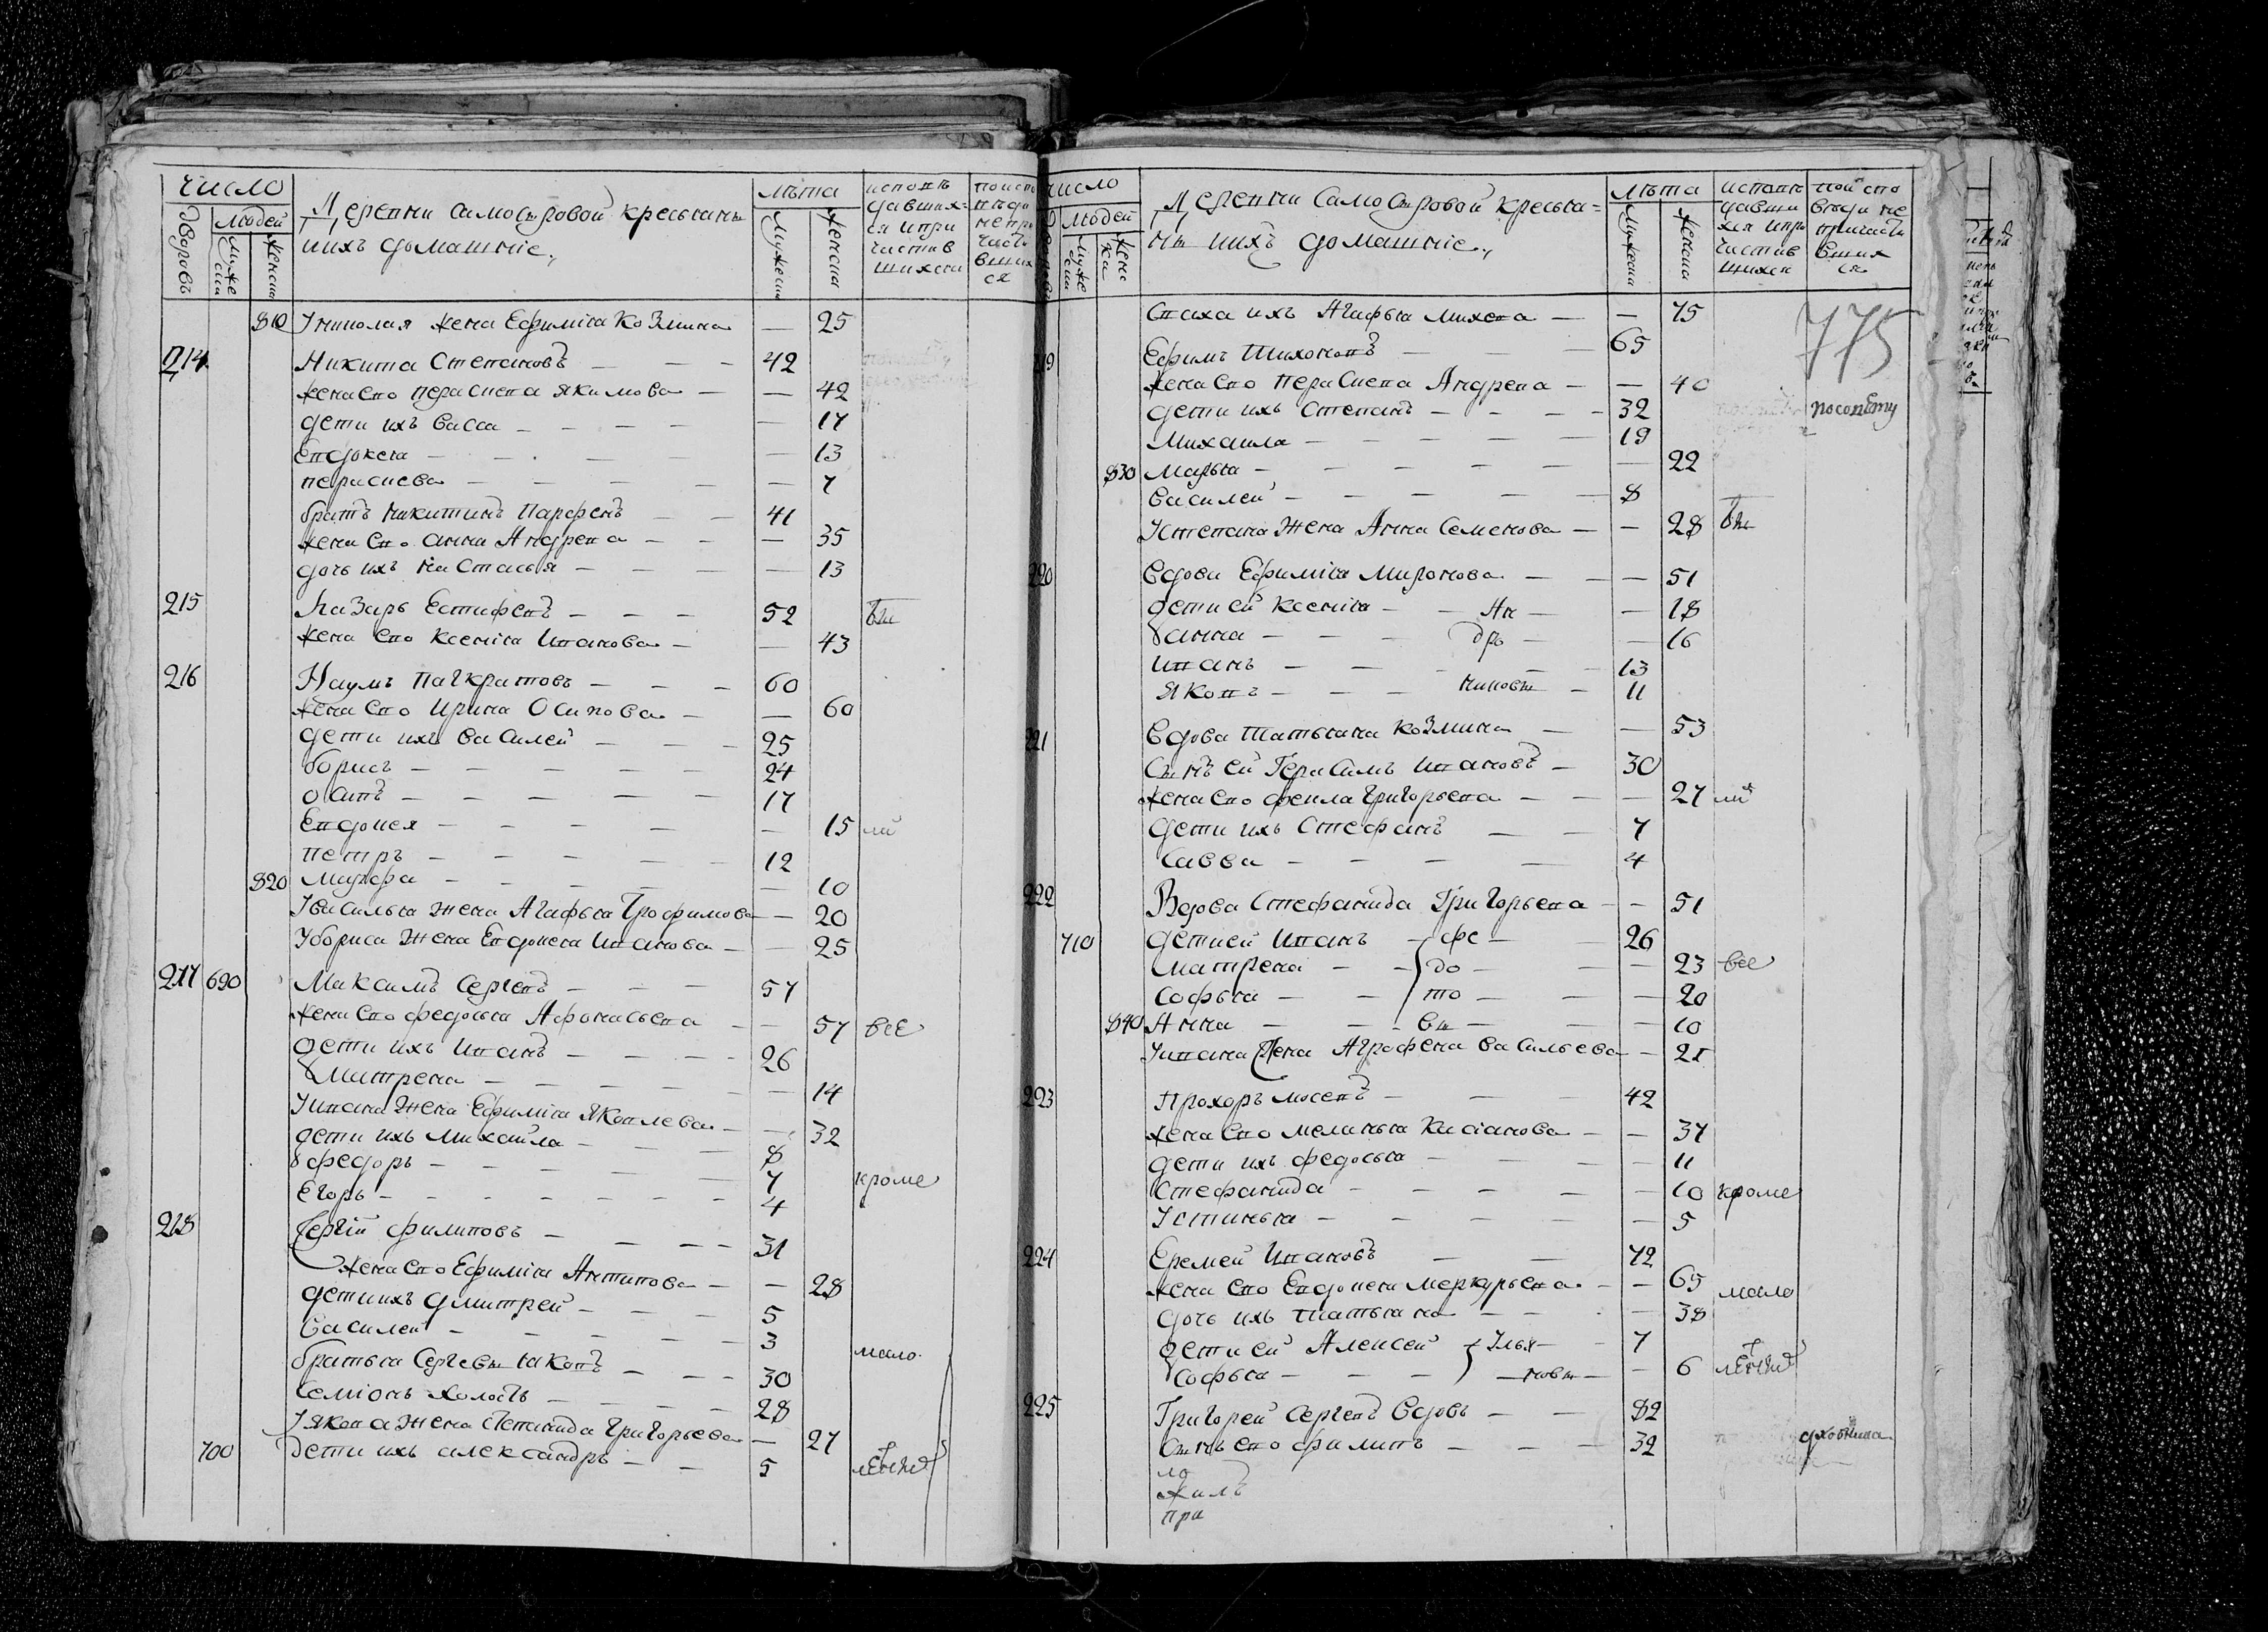 число
Дворовъ
людей
мужеска
женска
Деревни Самосыровой крестьяны
и ихъ домашніе,
лѣта
мужеска
женска
исповѣ
давших
ся и при
частив
шихся
810 У николая жена Ефимiа Козмина — 25
214 Никита Степановъ 42
жена ево Парасковя Якимова — 42
дети ихъ Васса — 17
Евдокея — 13
Парасковя — 7
братъ никитинъ Парфенъ 41
жена ево Анна Андреева — 35
дочь ихъ Настасья — 13
215 Лазарь Естифеевъ 52
жена ево Ксенiа Иванова — 43
216 Наумъ Панкратовъ 60
жена ево Ирина Осипова — 60
дети ихъ Василей 25
борисъ 24
Осипъ 17
Евдокея — 15
петръ 12
820 Марфа — 10
У Василья жена Агафья Трофимова — 20
У бориса жена Евдокея Иванова — 25
217 690 Максимъ Сергеевъ 57
жена ево Федосья Афонасьева — 57 все
дети ихъ Иванъ 26
Матрена — 14
У Ивана жена Ефимiа Яковлева — 32
дети ихъ Михайла 8
Федоръ 7 кроме
Егоръ 4
218 Сергiй Филиповъ 31
жена ево Ефимiа Антипова — 28
дети ихъ Дмитрей 5
Василей 3 мало
братья Сергевы Яковъ 30
Семiонъ холостъ 28
У Якова жена Степанида Григорьева — 27
700 Дети ихъ Александръ 5 летних
число
людей
мужеска
женска
Деревни Самосыровой крестья=
ны и ихъ домашніе,
лѣта
мужеска
женска
исповѣ
давши
хся и при
частив
шихся
775
Сваха ихъ Агафья Михеева — 75
219 Ефимъ Тихоновъ 65
жена ево Парасковя Андреева — 40
дети ихъ Степанъ 32
Михаила 19
830 Марья — 22
Василей 8
У Степана жена Анна Семенова — 28
220 Вдова Ефимiа Миронова — 51
дети ей Ксенiа — Ан — 18
Анна — дрѣ — 16
Иванъ 13
Яковъ — яновы 11
221 Вдова Татьяна Козмина — 53
Сынъ ей Герасимъ Ивановъ 30
жена ево Фекла Григорьева — 27
дети ихъ Стефанъ 7
Савва 4
222 Вдова Стефанида Григорьева — 51
710 дети ей Иванъ — фе — 26
Матрена — до — 23 все
Софья — то — 20
840 Анна — вы — 10
У Ивана жена Аграфена Васильева — 21
223 Прохоръ Мосеевъ 42
жена ево Меланья Касiанова — 37
дети ихъ Федосья — 11
Стефанида — 10 кроме
Устинья — 5
224 Еремей Ивановъ 72
жена ево Евдокея Меркурьева — 65 мало
дочь ихъ Татьяна — 38
дети ей Алексей Илья 7
Софья — новы — 6 летних
225 Григорей Сергеевъ Вдовъ 82
Сынъ ево Филипъ 32
ло
жилъ
при